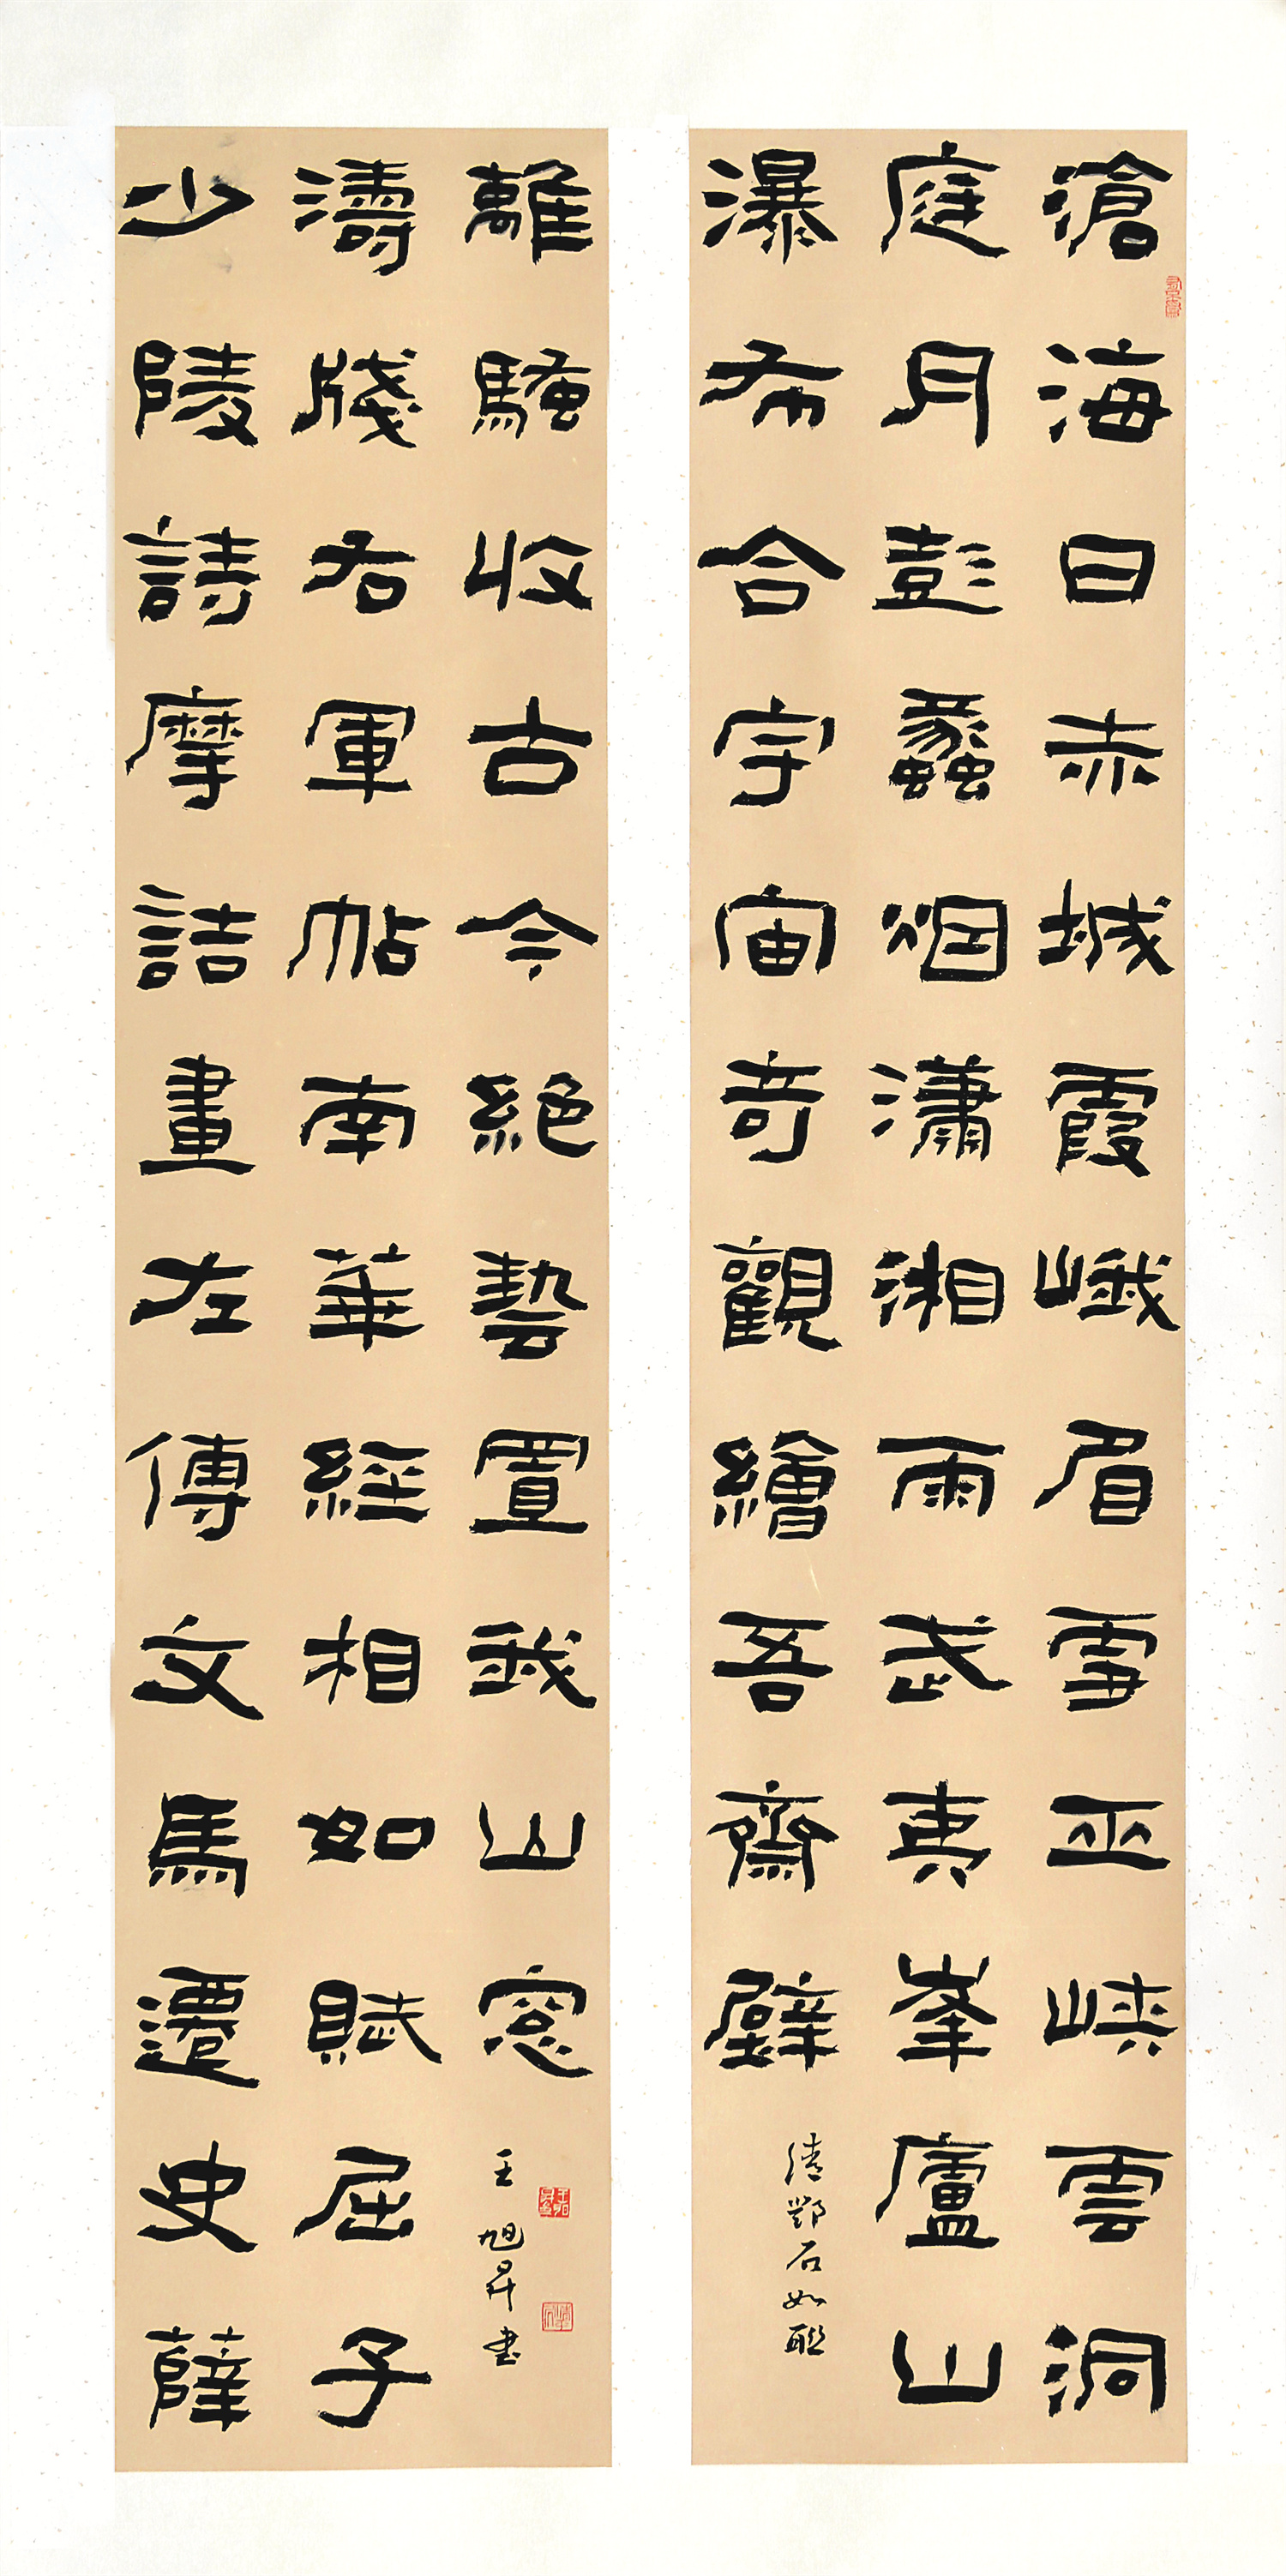 滄海日赤城霞峨眉雪巫峽雲洞
庭月彭蠡烟瀟湘雨武夷峯廬山
瀑布合宇宙奇觀繪吾齋壁
清鄧石如聯
少陵詩摩詰畫左傳文馬遷史薛
濤牋右軍帖南華經相如賦屈子
離騷收古今絕藝置我山窓
王旭昇書